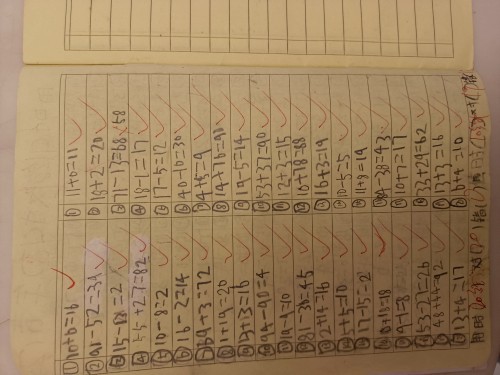 ① 10+6=16 ① 11+0=11
② 91-52=39 ② 18+2=20
③ 15-13=2 ③ 71-13=68 58
④ 55+27=82 ④ 18-1=17
⑤ 10-8=2 ⑤ 17-5=12
⑥ 16-2=14 ⑥ 40-10=30
⑦ 69+3=72 ⑦ 4+5=9
⑧ 1+19=20 ⑧ 14+76=90
⑨ 13+3=16 ⑨ 19-5=14
⑩ 94-90=4 ⑩ 53+37=90
⑪ 19-9=10 ⑪ 12+3=15
⑫ 81-36=45 ⑫ 10+78=88
⑬ 2+14=16 ⑬ 16+3=19
⑭ 5+5=10 ⑭ 10-5=5
⑮ 17-15=2 ⑮ 11+8=19
⑯ 10+8=18 ⑯ 73-30=43
⑰ 9-1=8 ⑰ 10+7=17
⑱ 53-27=26 ⑱ 33+29=62
⑲ 48+44=92 ⑲ 13+3=16
⑳ 13+4=17 ⑳ 6+4=10
用时